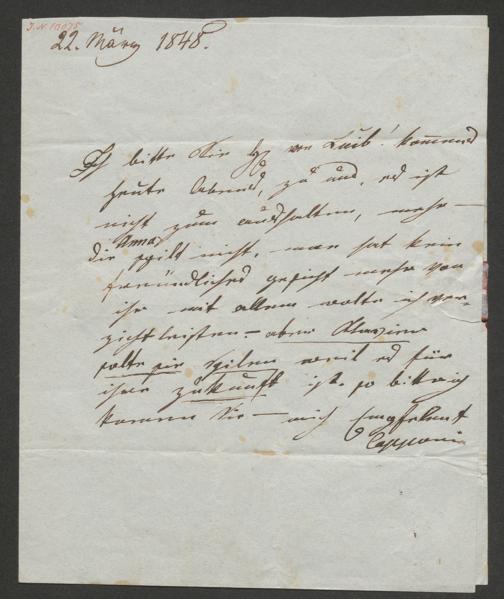 I.N. 10075
22. März 1848.
Ich bitte Sie H von Laib! kommend
heute Abend, zu uns, es ist
nicht zum aushalten, mehr —
Anna
die spilt nicht, man hat kein
freundliches gesicht mehr von
ihr mit allem wolte ich ver-
zichtleisten — aber Klavier
solte sie spilen weil es für
ihre zukunft ist so bitte ich
kommen Sie — mich Empfelent